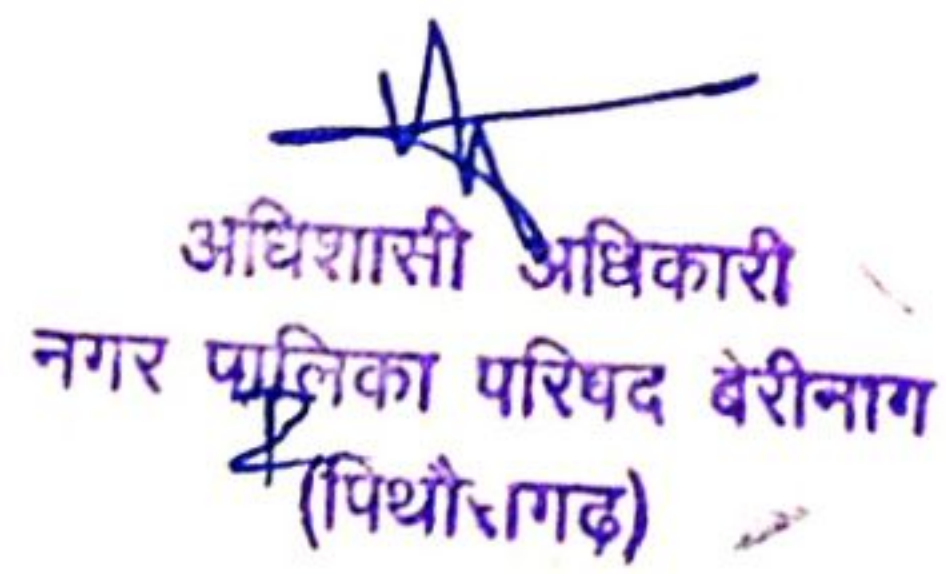 अधिशासी अधिकारी
नगर पालिका परिषद बेरीनाग
(पिथौरागढ)